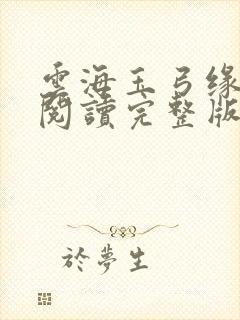 雲海玉弓缘
閱讀完整版
於夢生